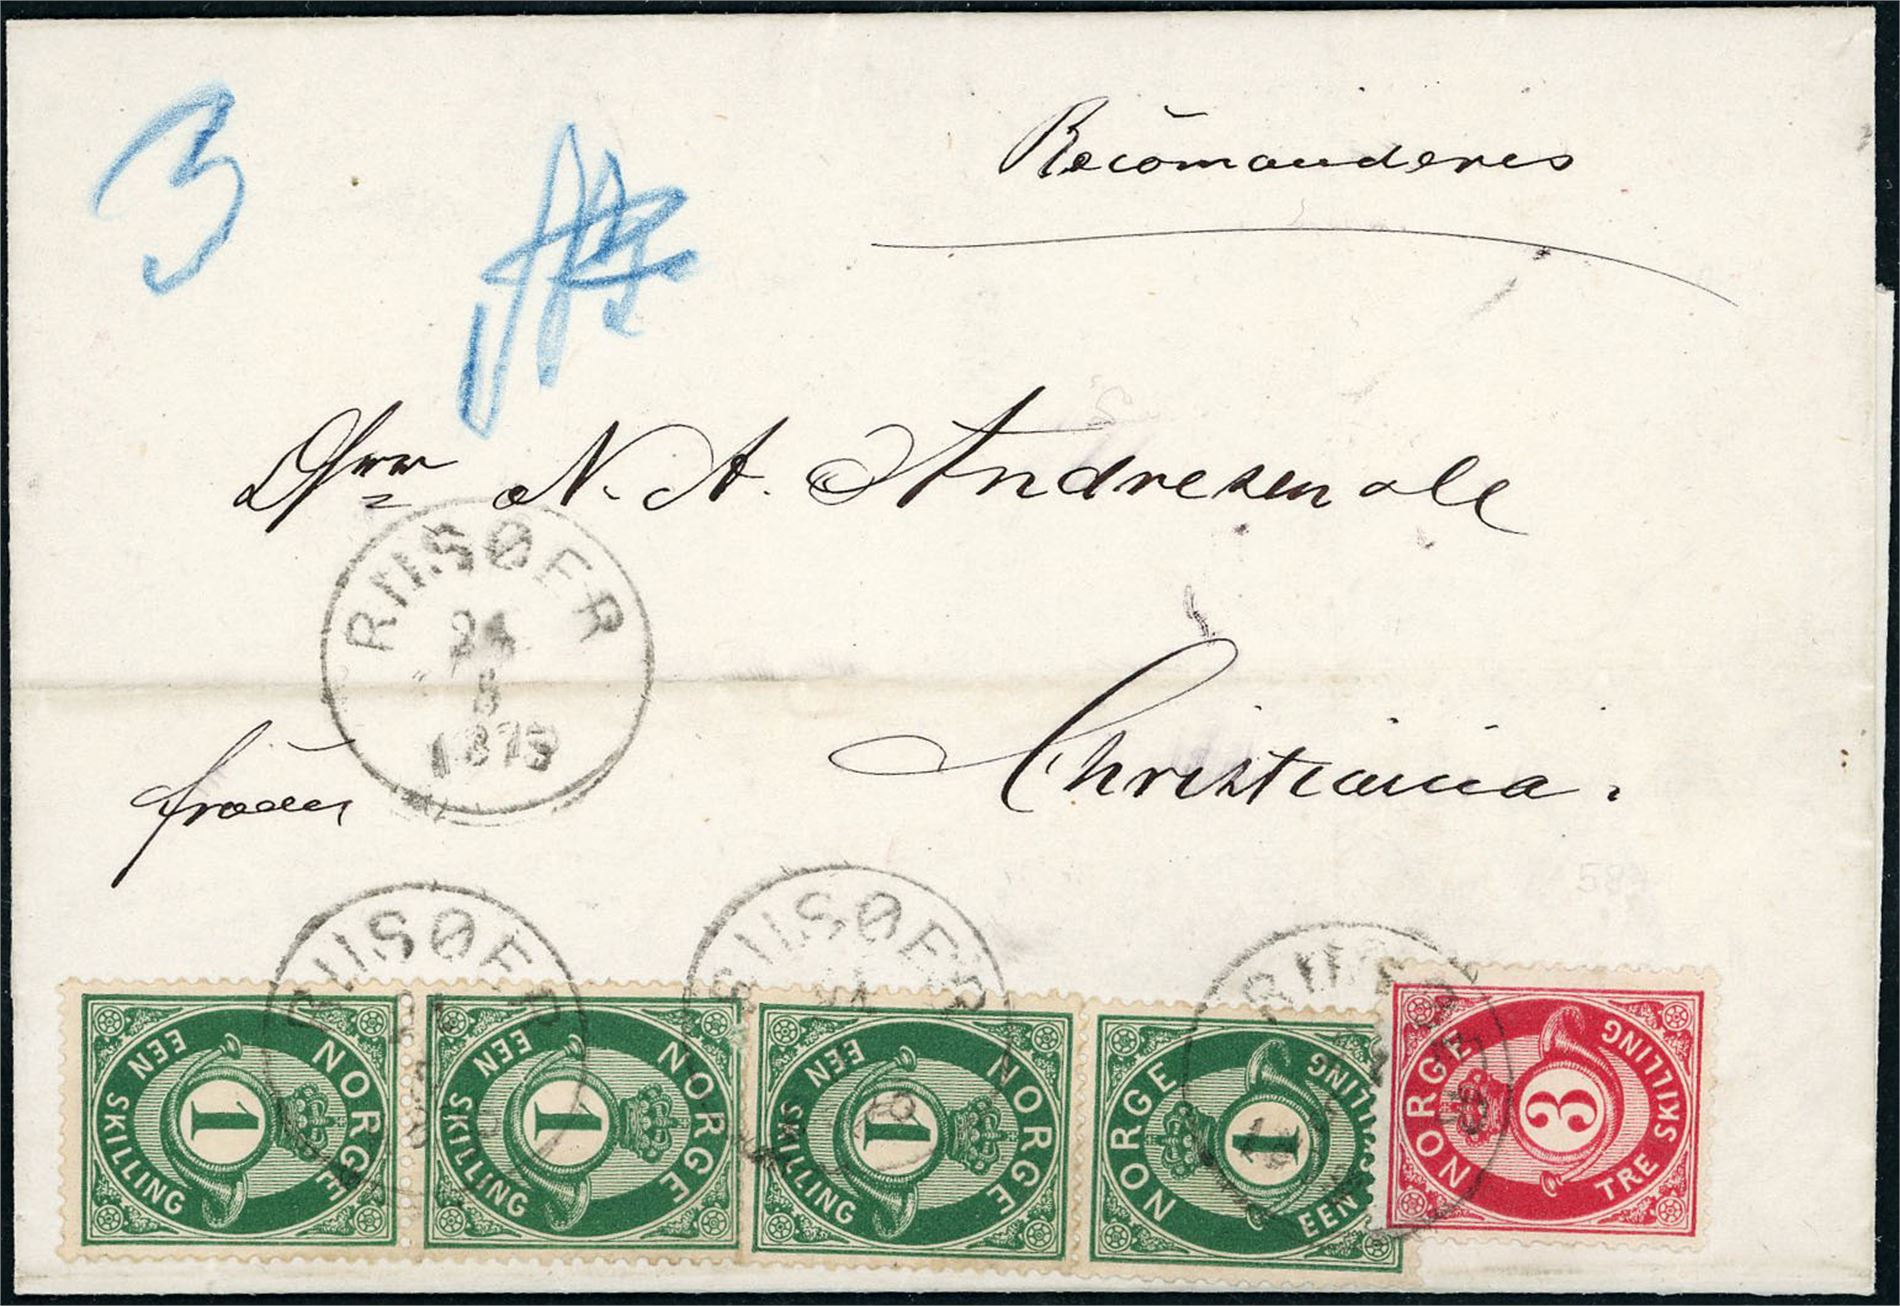 3
Recomanderes
Hrr N. A. Andresen
RIISØER
24
5
1875
Christiania.
franco
RIISØER
RIISØER
RIISØER
NORGE
1
EEN SKILLING
NORGE
1
EEN SKILLING
NORGE
1
EEN SKILLING
NORGE
1
EEN SKILLING
NORGE
3
TRE SKILLING